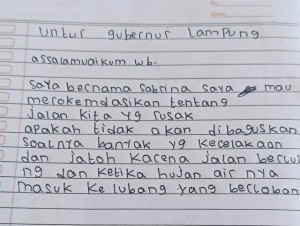 untur gubernur lampung
assalamuaikum wb.
saya bernama sabrina saya mau
merokemdasikan tentang
jalan kita yg rusak
apakah tidak akan dibaguskan
soalnya banyak yg kecelakaan
dan jatoh karena jalan berlu
ng dan ketika hujan air nya
masuk ke lubang yang